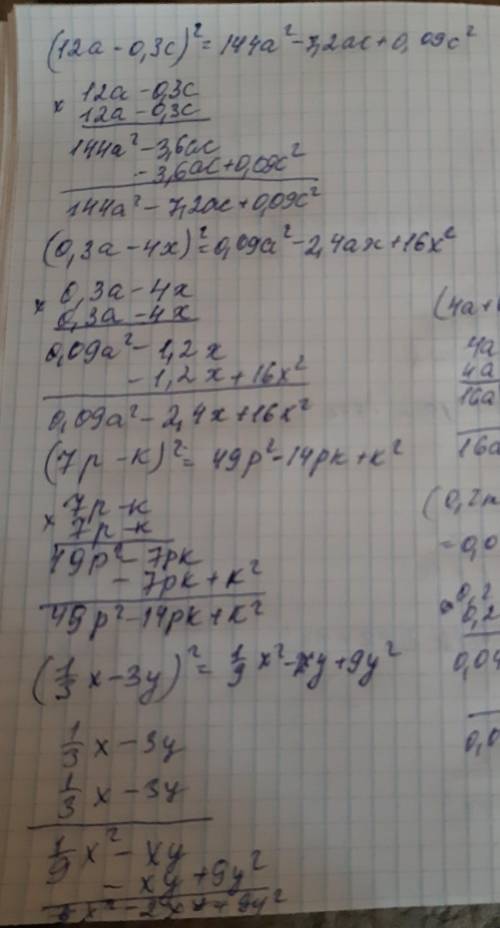 (12a - 0,3c)² = 144a² - 7,2ac + 0,09c²
× 12a - 0,3c
12a - 0,3c
144a² - 3,6ac
- 3,6ac + 0,09c²
144a² - 7,2ac + 0,09c²
(0,3a - 4x)² = 0,09a² - 2,4ax + 16x²
× 0,3a - 4x
0,3a - 4x
0,09a² - 1,2x
- 1,2x + 16x²
0,09a² - 2,4x + 16x²
(7p - k)² = 49p² - 14pk + k²
× 7p - k
7p - k
49p² - 7pk
- 7pk + k²
49p² - 14pk + k²
(1/3 x - 3y)² = 1/9 x² - xy + 9y²
1/3 x - 3y
1/3 x - 3y
1/9 x² - xy
- xy + 9y²
(4a +
4a
4a
16a
16a
(0,2
= 0,0
0,2
0,2
0,04
0,0